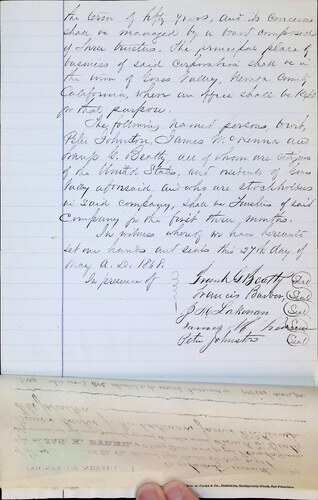 the term of fifty years, and its concerns
shall be managed by a board composed
of three trustees. The principal place of
business of said Corporation shall be in
the town of Grass Valley, Nevada County
California, where an office shall be kept
for that purpose.
The following named persons, to wit,
Peter Johnston, James McKenna and
Frank G. Beatty, all of whom are citizens
of the United States, and residents of Grass
Valley aforesaid and who are stockholders
in said company, shall be Trustees of said
Company for the first three months.
In witness whereof we have hereunto
set our hands and seals this 27th day of
May A.D. 1868.
In presence of
Frank G Beatty Seal
Francis Barbour Seal
J H Lakenan Seal
James Mc Seal
Peter Johnston Seal